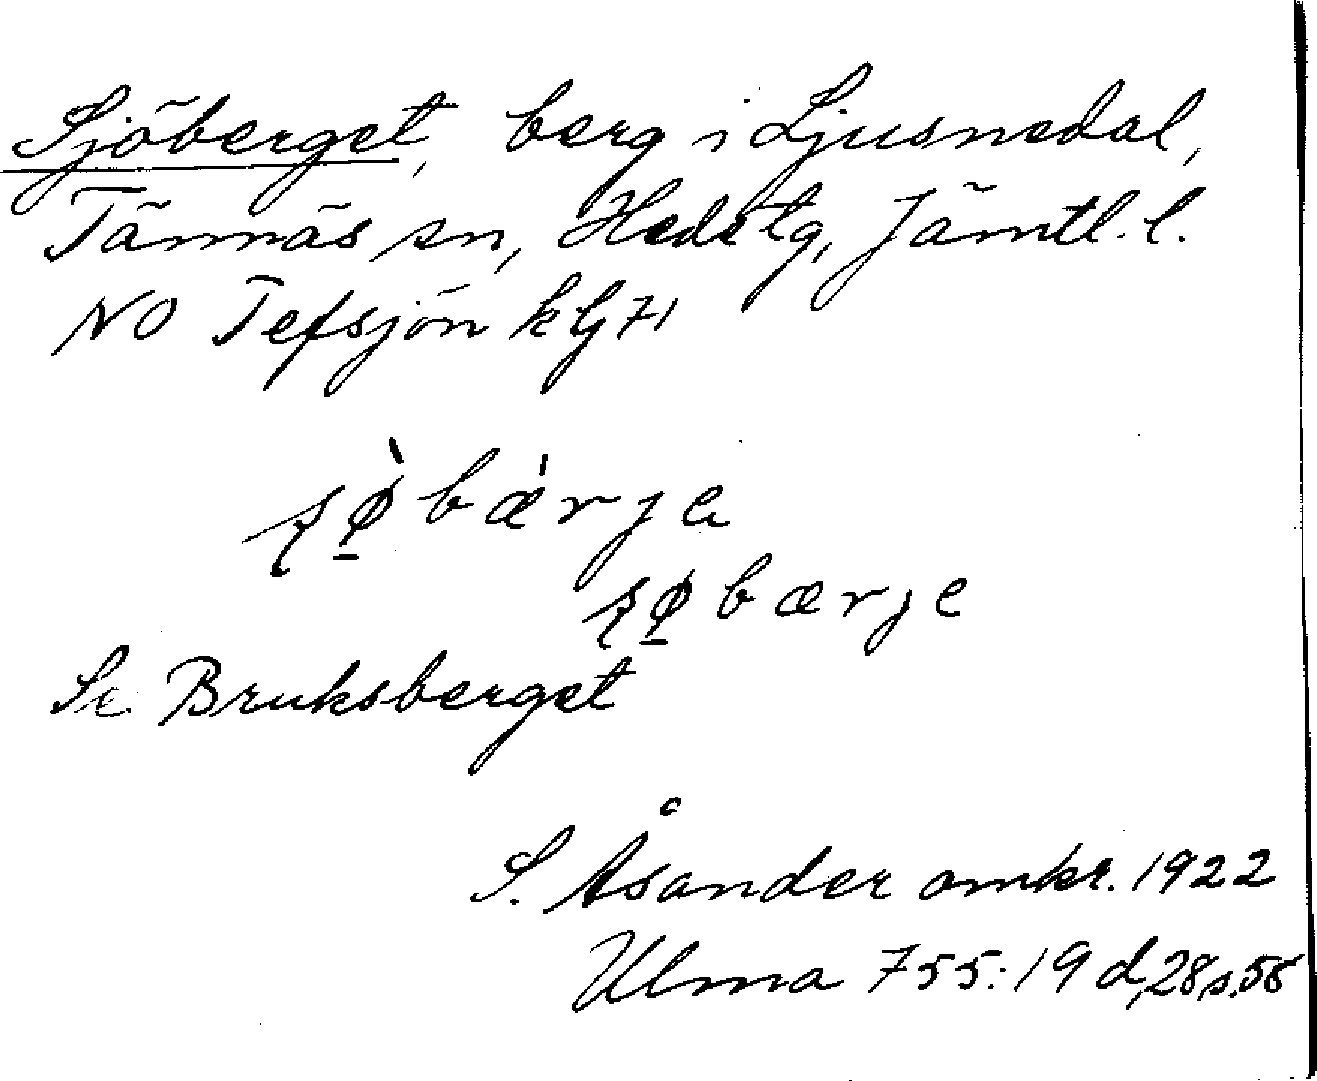 Sjöberget, berg i Ljusnedal,
Tännäs sn, Hede tg, Jämtl. l.
NO Tefsjön kbl 71
bǽrje
bærje
Se Bruksberget
S. Åsander omkr. 1922
Ulma 755:19 d, 28, s. 58